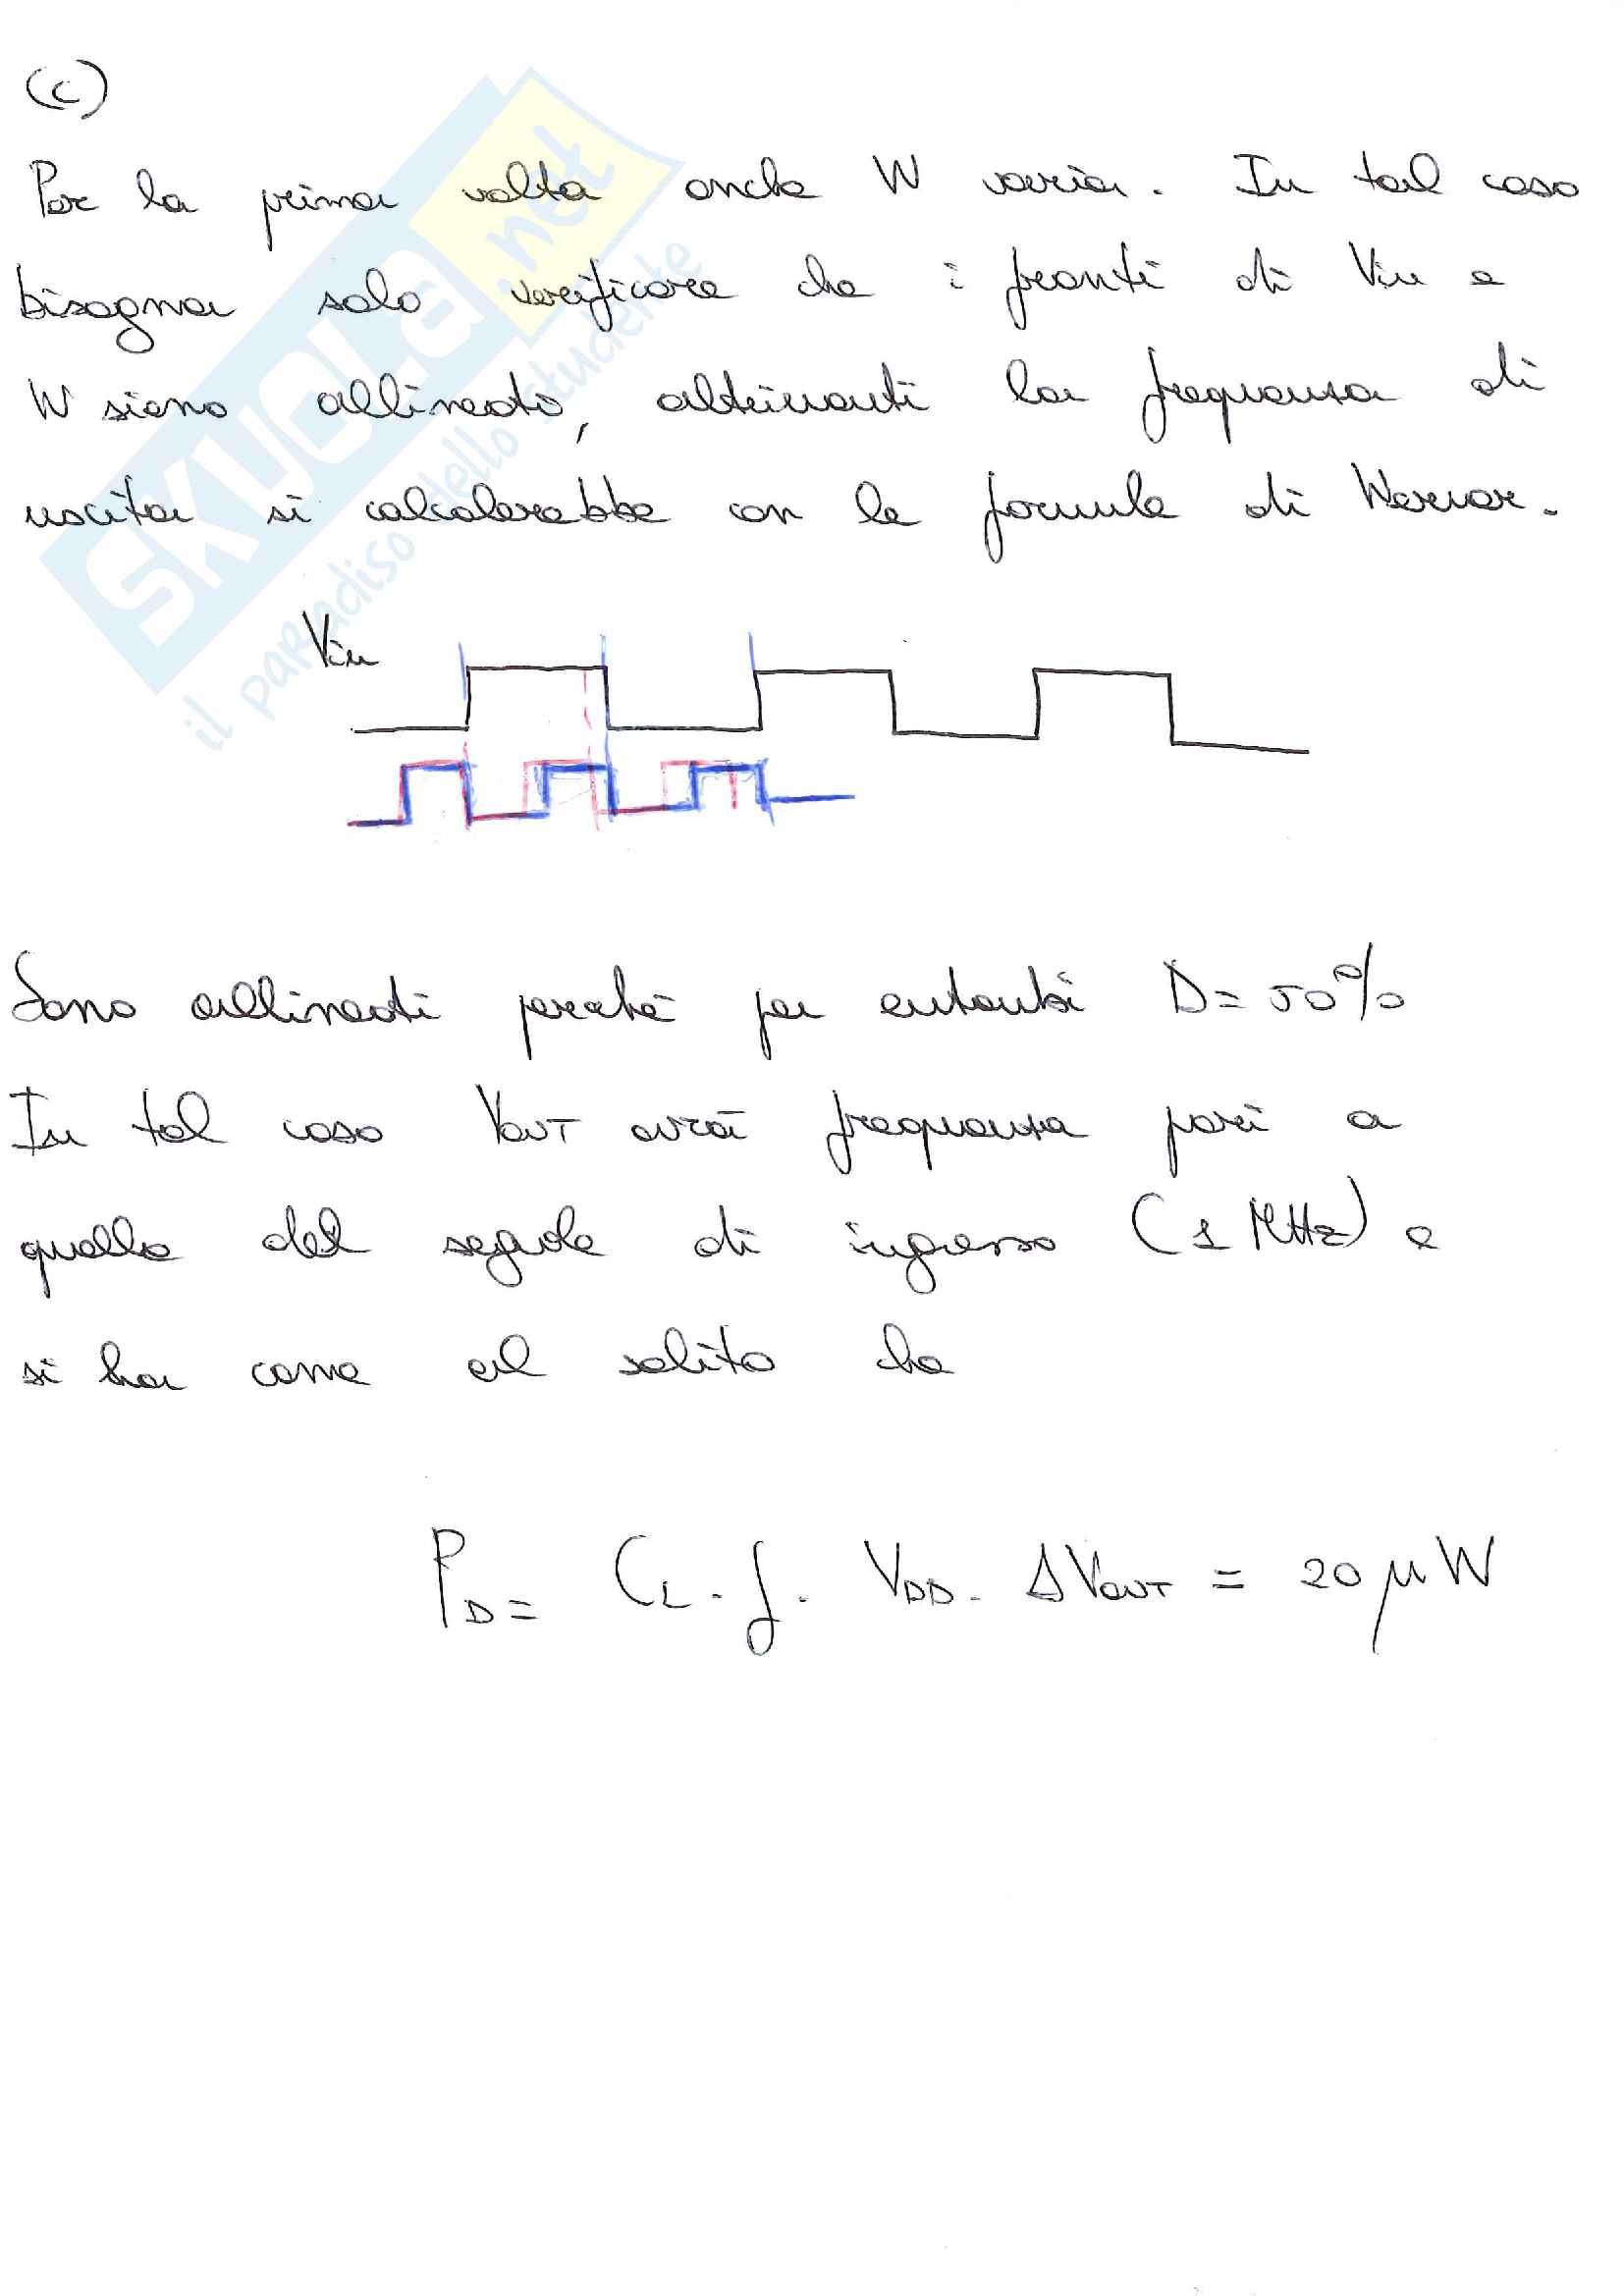 (c)
Per la prima volta anche W varia. In tal caso
bisogna solo verificare che i fronti di Vin e
W siano allineati, altrimenti la frequenza di
uscita si calcolerebbe con le formule di Werner.
Vin
Sono allineati perché per entrambi D = 50%
In tal caso VOUT avrà frequenza pari a
quella del segnale di ingresso (1 MHz) e
si ha come al solito che
PD = CL · f · VDD · ΔVOUT = 20 μW
SKUOLA.net
il paradiso dello studente